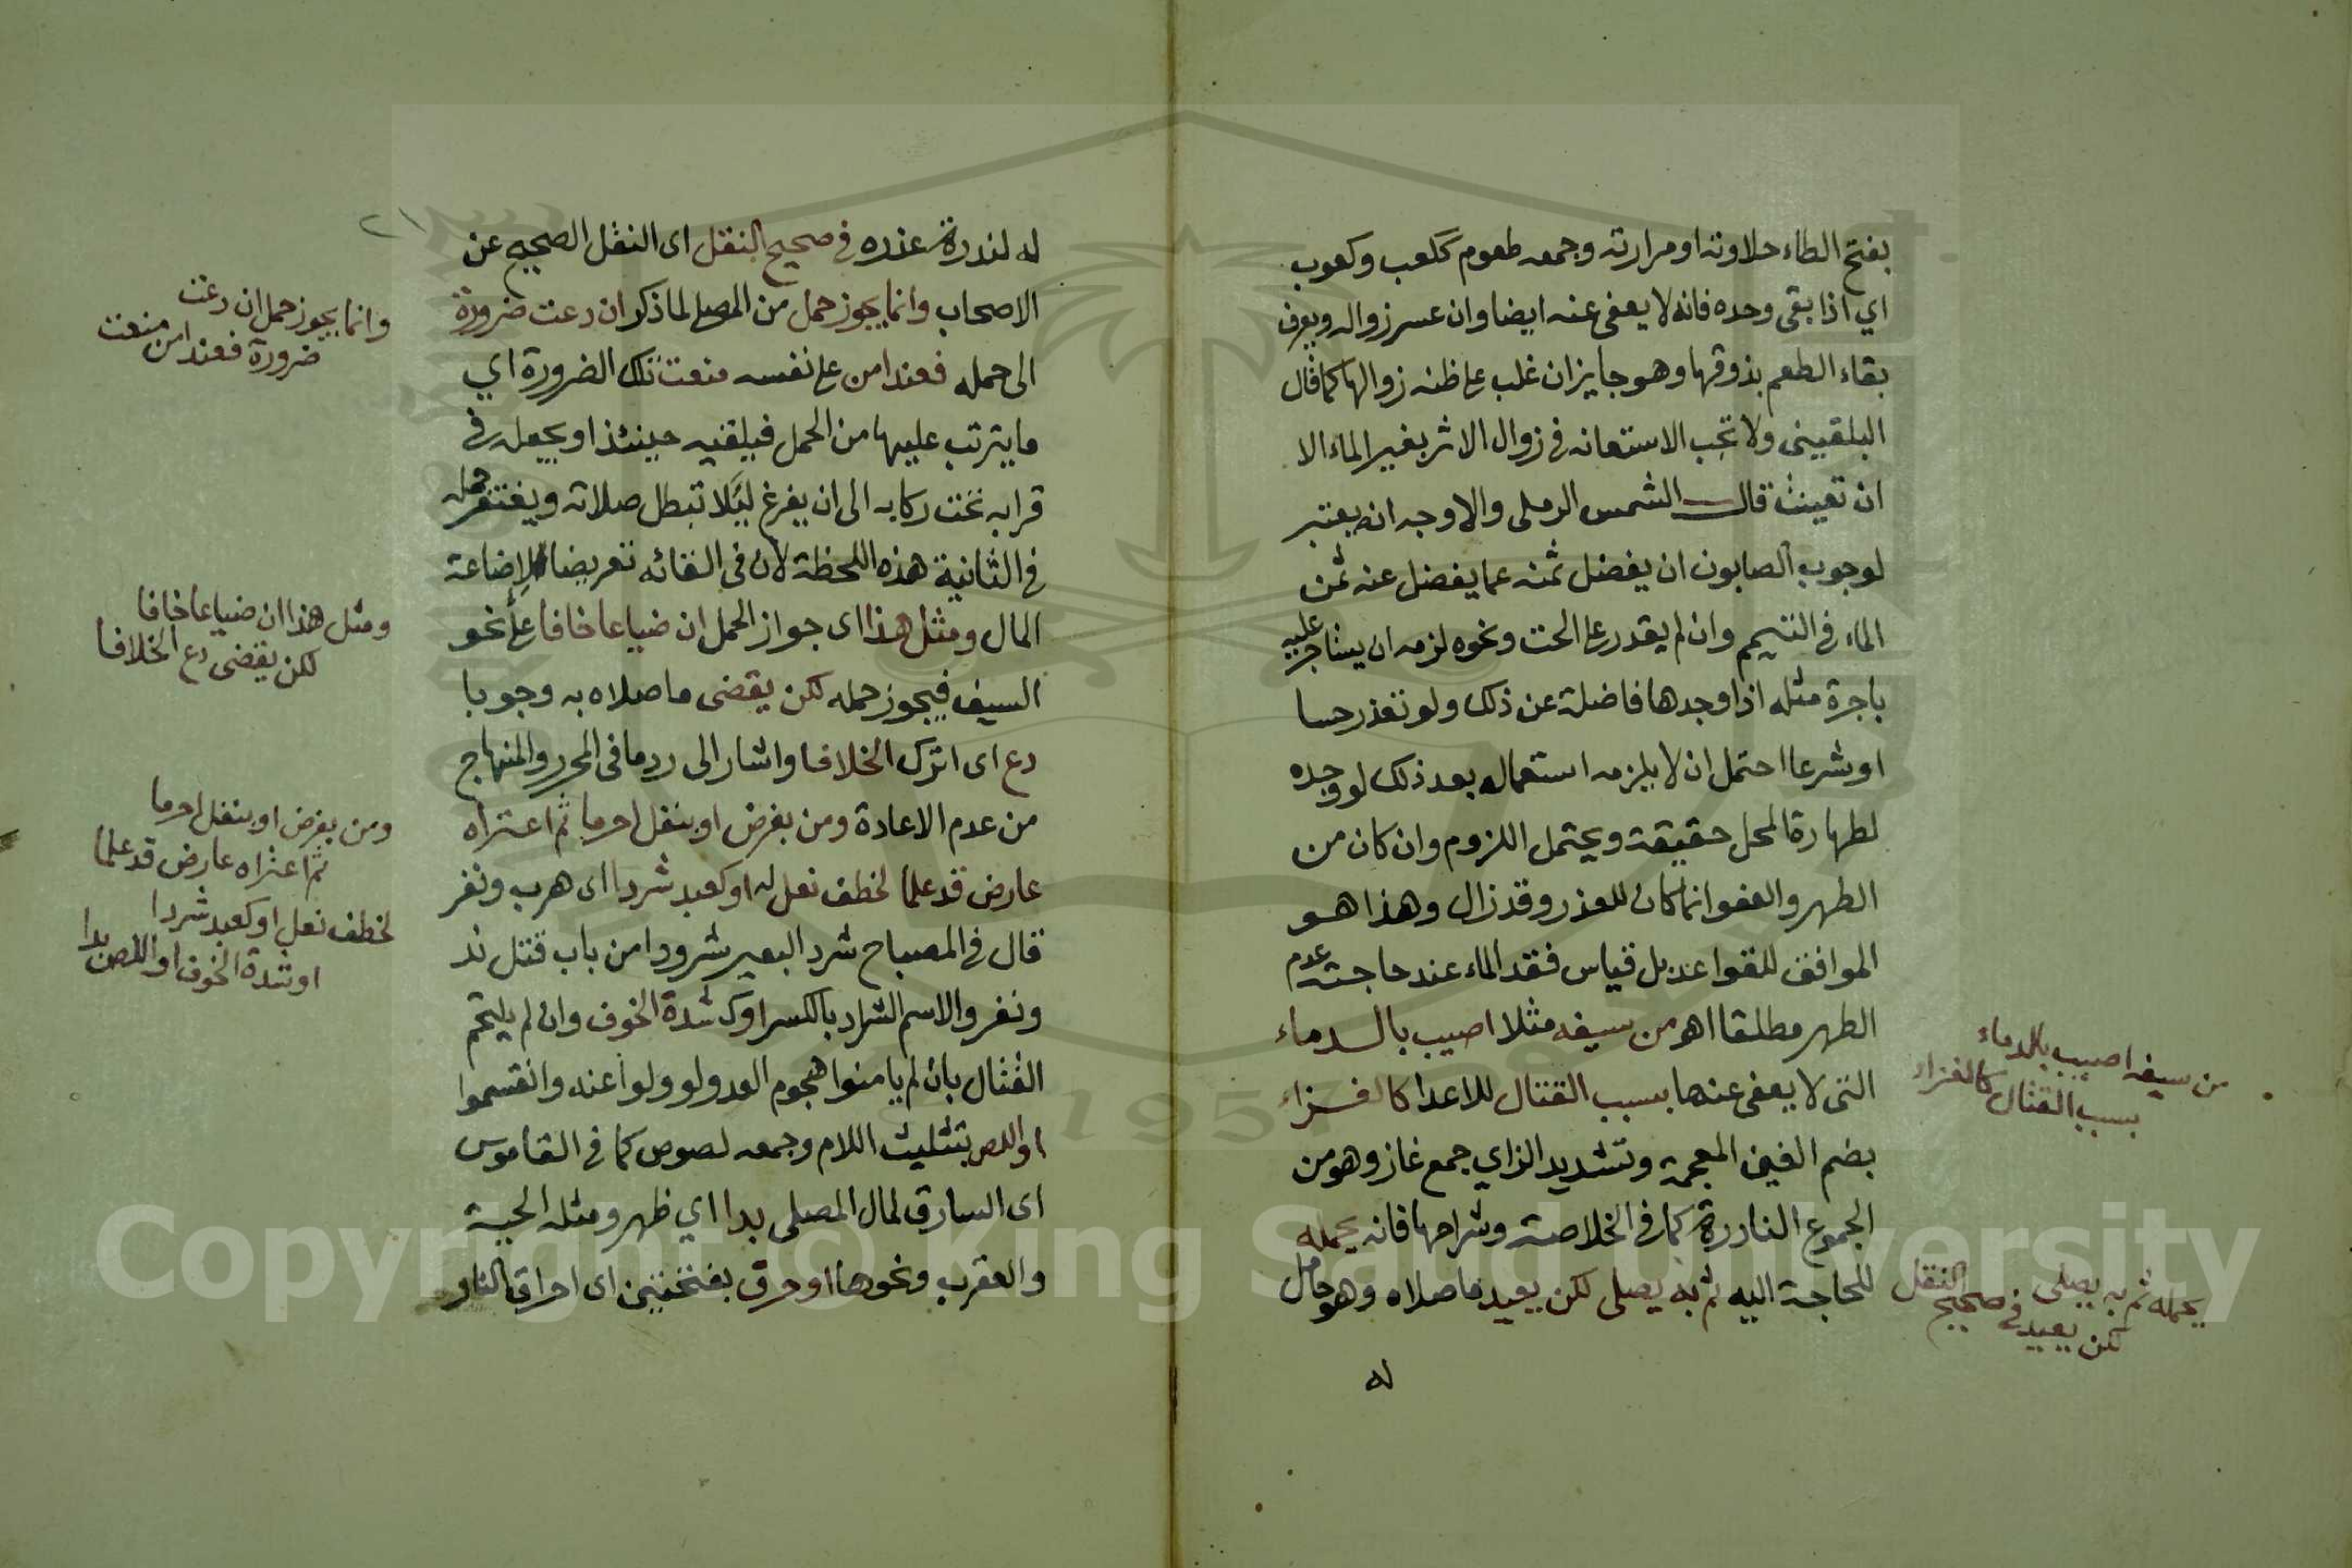 بفتح الطاء حلاوته او مرارته وجمعه طعوم ككعب وكعوب
اي اذا بقى وحده فانه لا يعفى عنه ايضا وان عسر زواله ويعرف
بقاء الطعم بذوقها وهو جايز ان غلب على ظنه زوالها كما قال
البلقينى ولا تجب الاستعانه فى زوال الاثر بغير الماء الا
ان تعينت قال الشمس الرملى والاوجه انه يعتبر
لوجوب الصابون ان يفضل ثمنه عما يفضل عنه ثمن
الماء فى التيمم وان لم يقدر على الحت ونحوه لزمه ان يستاجر عليه
باجرة مثله اذا وجدها فاضلة عن ذلك ولو تعذر حسا
او شرعا احتمل ان لا يلزمه استعماله بعد ذلك لو وجده
لطهارة المحل حقيقة ويحتمل اللزوم وان كان من
الطهر والعفو انما كان للعذر وقد زال وهذا هو
الموافق للقواعد بل قياس فقد الماء عند حاجته عدم
الطهر مطلقا اهو من سيفه مثلا اصيب بالدماء
التى لا يعفى عنها بسبب القتال للاعدا كالغزاء
بضم الغين المعجمة وتشديد الزاي جمع غاز وهو من
الجموع النادرة كما فى الخلاصة وشراحها فانه يحمله
للحاجة اليه ثم به يصلى لكن يعيد ما صلاه وهو حامل
له
من سيفه اصيب بالدماء
بسبب القتال كالغزاء
يحمله ثم به يصلى
لكن يعيد فى صحيح النقل
له لندرة عذره فى صحيح النقل اى النقل الصحيح عن
الاصحاب وانما يجوز حمل من المصلى لما ذكر ان دعت ضرورة
الى حمله فعند امن على نفسه منعت تلك الضرورة اي
ما يترتب عليها من الحمل فيلقيه حينئذ او يجعله فى
قرابه تحت ركابه الى ان يفرغ ليلا تبطل صلاته ويغتفر حمله
فى الثانية هذه اللحظة لان فى القائه تعريضا لاضاعة
المال ومثل هذا اى جواز الحمل ان ضياعا خافا على نحو
السيف فيجوز حمله لكن يقضى ما صلاه به وجوبا
دع اى اترك الخلافا واشار الى رد ما فى المحرر والمنهاج
من عدم الاعادة ومن بفرض او بنفل احرما ثم اعتراه
عارض قد علما لخطف نعل له او كعبد شردا اى هرب ونفر
قال فى المصباح شرد البعير شرودا من باب قتل ند
ونفر والاسم الشراد بالكسر او كشدة الخوف وان لم يلتحم
القتال بان لم يامنوا هجوم العدو لو ولوا عنه وانقسموا
او اللص بتثليث اللام وجمعه لصوص كما فى القاموس
اى السارق لمال المصلى بدا اي ظهر ومثله الحية
والعقرب ونحوها او حرق بفتحتين اى احراق النار
٢١
وانما يجوز حمل ان دعت
ضرورة فعند امن منعت
ومثل هذا ان ضياعا خافا
لكن يقضى دع الخلافا
ومن بفرض او بنفل احرما
ثم اعتراه عارض قد علما
لخطف نعل او كعبد شردا
او شدة الخوف او اللص بدا
Copyright © King Saud University
1957